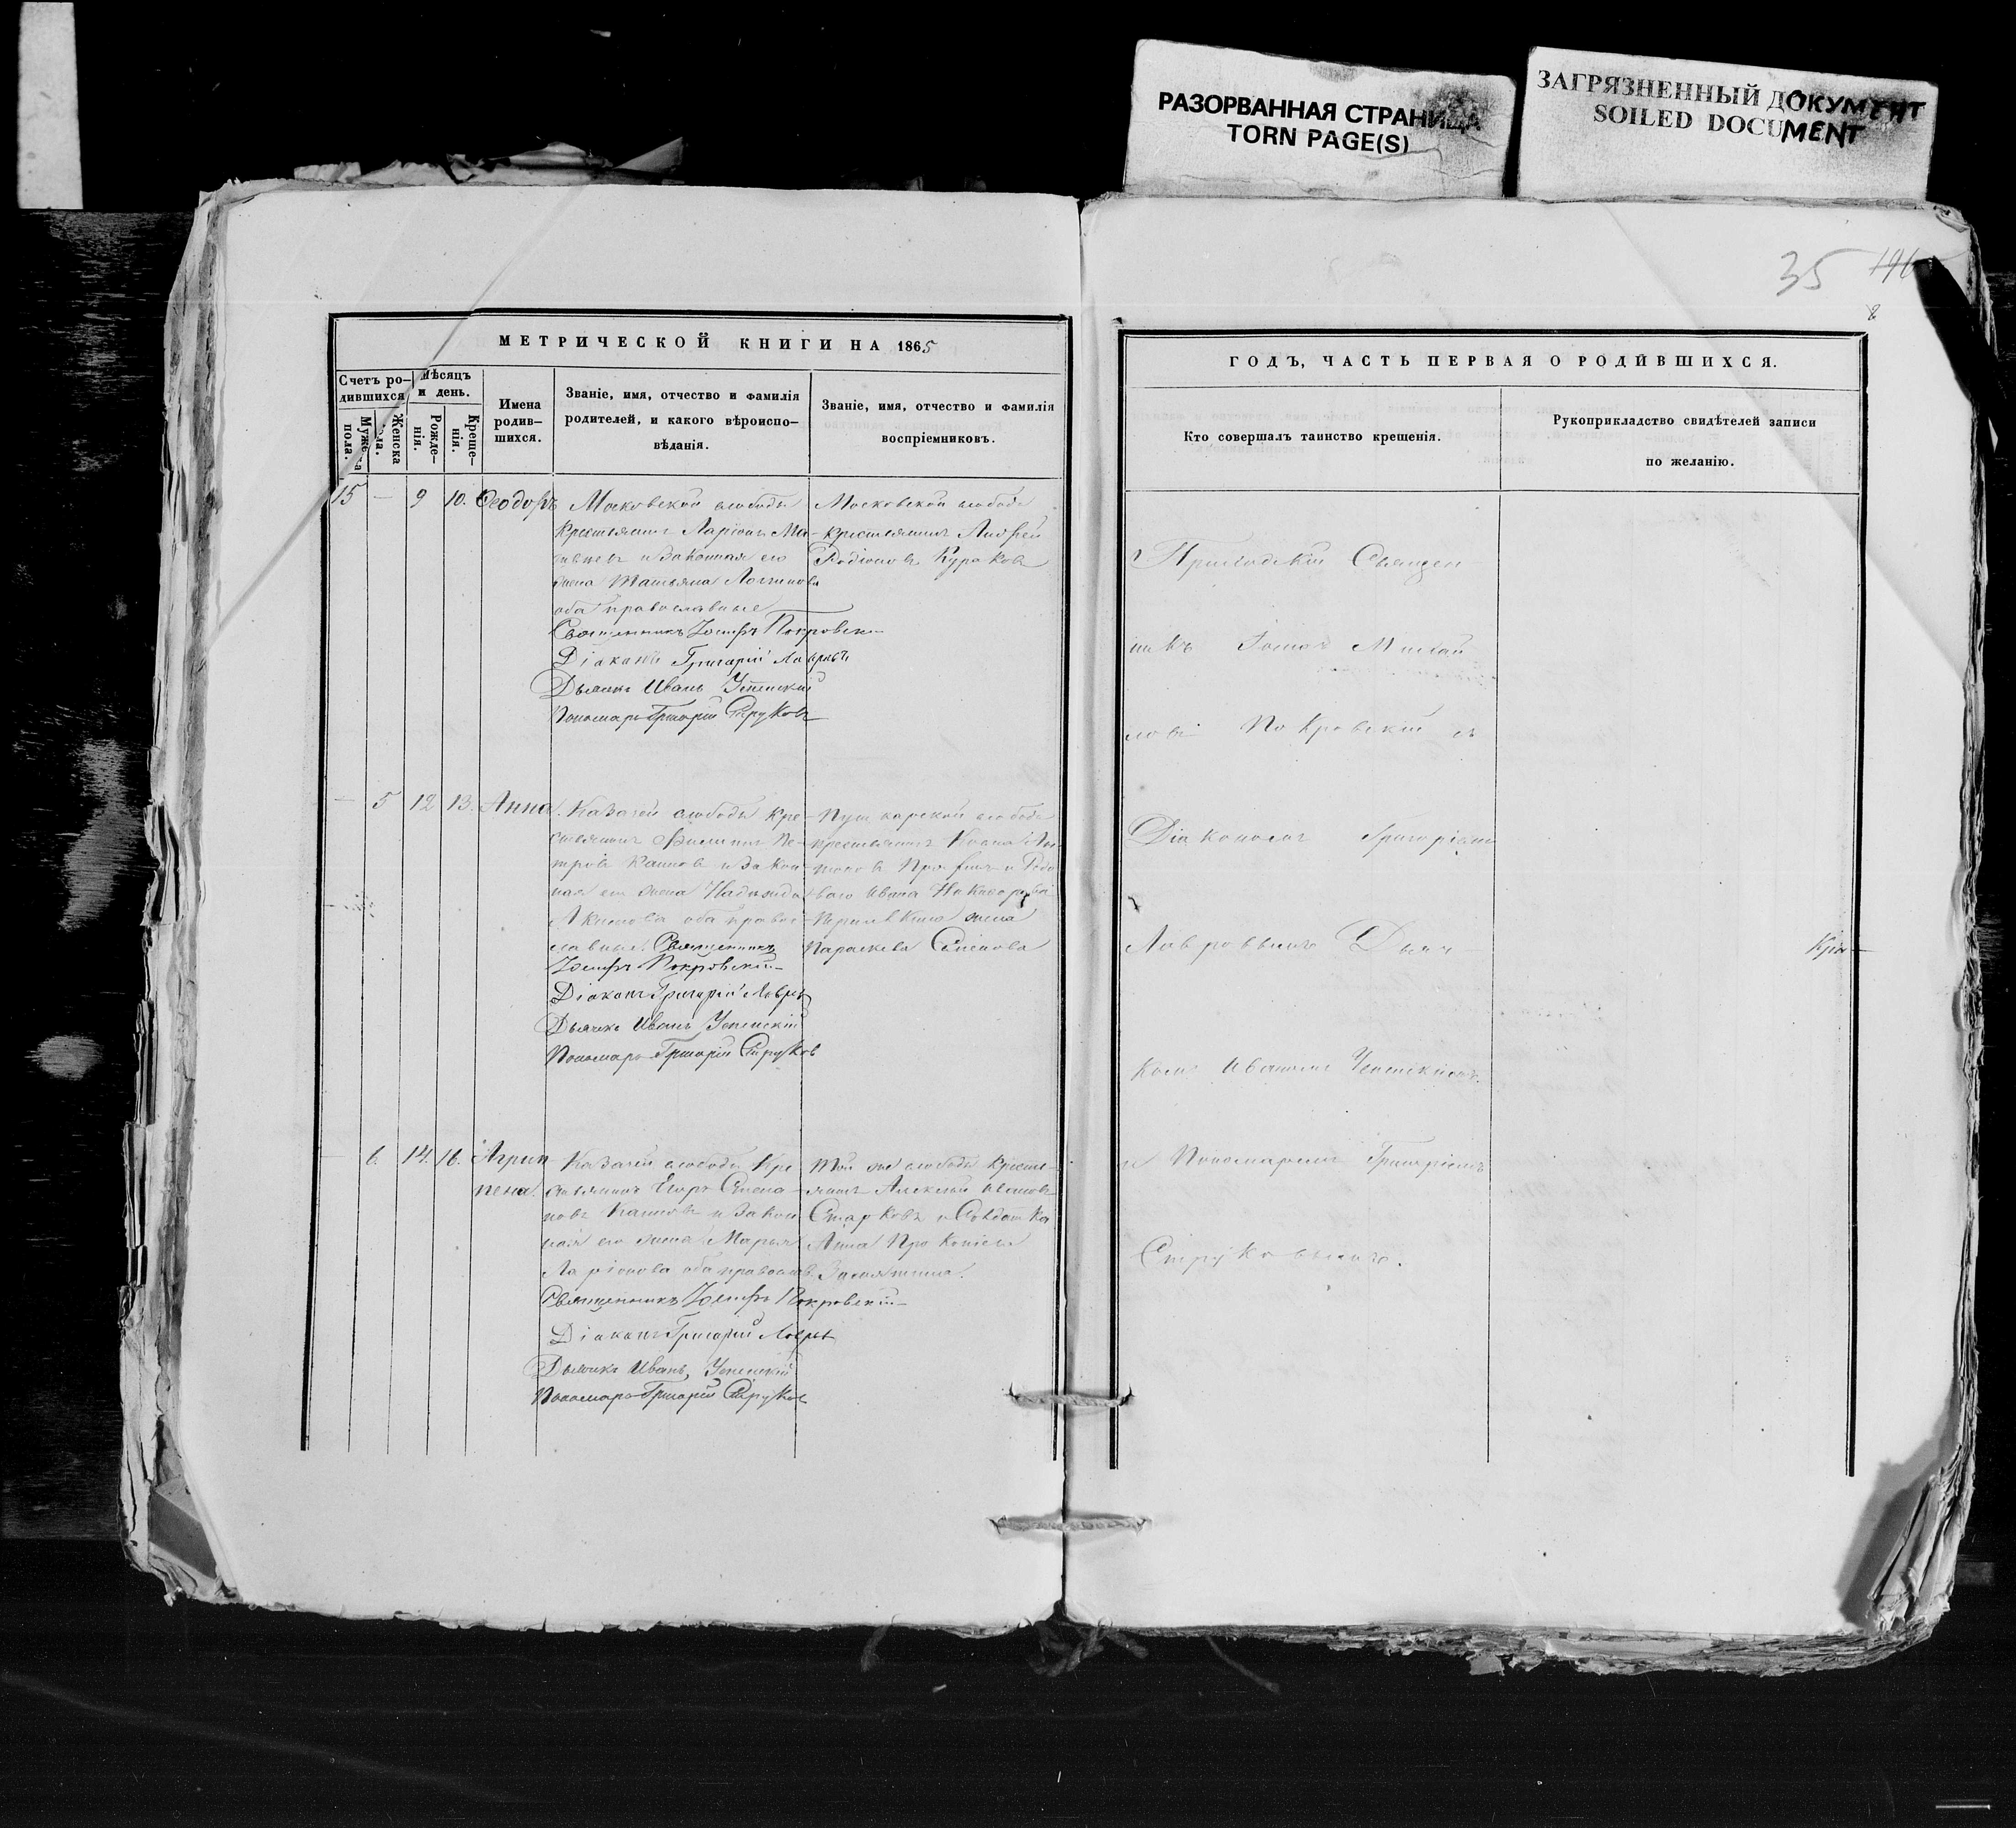 РАЗОРВАННАЯ СТРАНИЦА
TORN PAGE(S)
ЗАГРЯЗНЕННЫЙ ДОКУМЕНТ
SOILED DOCUMENT
35
МЕТРИЧЕСКОЙ КНИГИ НА 1865
Счетъ ро-
дившихся
Мѣсяцъ
и день.
Имена
родив-
шихся.
Званіе, имя, отчество и фамилія
родителей, и какого вѣроиспо-
вѣданія.
Званіе, имя, отчество и фамилія
воспріемниковъ.
Женска
пола.
Рожде-
нія.
Креще-
нія.
15 — 9 10. Ѳеодоръ
Московской слободы
крестьянинъ Ларіонъ Ма-
и законная его
жена Татьяна Логинова
оба православные
Священникъ Іосифъ Покровскі
Діаконъ Григорій Лавровъ
Дьячекъ Иванъ Успенскій
Пономарь Григорій Струковъ
Московской слободы
крестьянинъ Андрей
Родіоновъ Кураковъ
— 5 12 13. Анна.
Казачей слободы кре-
стьянинъ Филиппъ Пе-
тровъ и закон-
ная его жена Надежда
Акимова оба правос-
лавные. Священникъ
Іосифъ Покровскій
Діаконъ Григорій Лавровъ
Дьячекъ Иванъ Успенскій
Пономарь Григорій Струковъ
Пушкарской слободы
крестьянинъ
Ивана
жена
Параскева Семенова
— 6. 14. 16. Агрип-
пена.
Казачей слободы Кре-
стьянинъ Егоръ Семе-
новъ и закон-
ная его жена Марья
Ларіонова оба православ.
Священникъ Іосифъ Покровскій
Діаконъ Григорій Лавровъ
Дьячекъ Иванъ Успенскій
Пономарь Григорій Струковъ
Той же слободы кресть-
янинъ Алексей Ивановъ
Старковъ и Солдатка
Анна Прокопіева
ГОДЪ, ЧАСТЬ ПЕРВАЯ О РОДИВШИХСЯ.
Кто совершалъ таинство крещенія.
Рукоприкладство свидѣтелей записи
по желанію.
Приходскій Священ-
никъ Михай-
ловъ Покровскій съ
Діакономъ Григоріемъ
Лавровымъ Дьяч-
комъ Иваномъ Успенскимъ
и Пономаремъ Григоріемъ
Струковымъ.